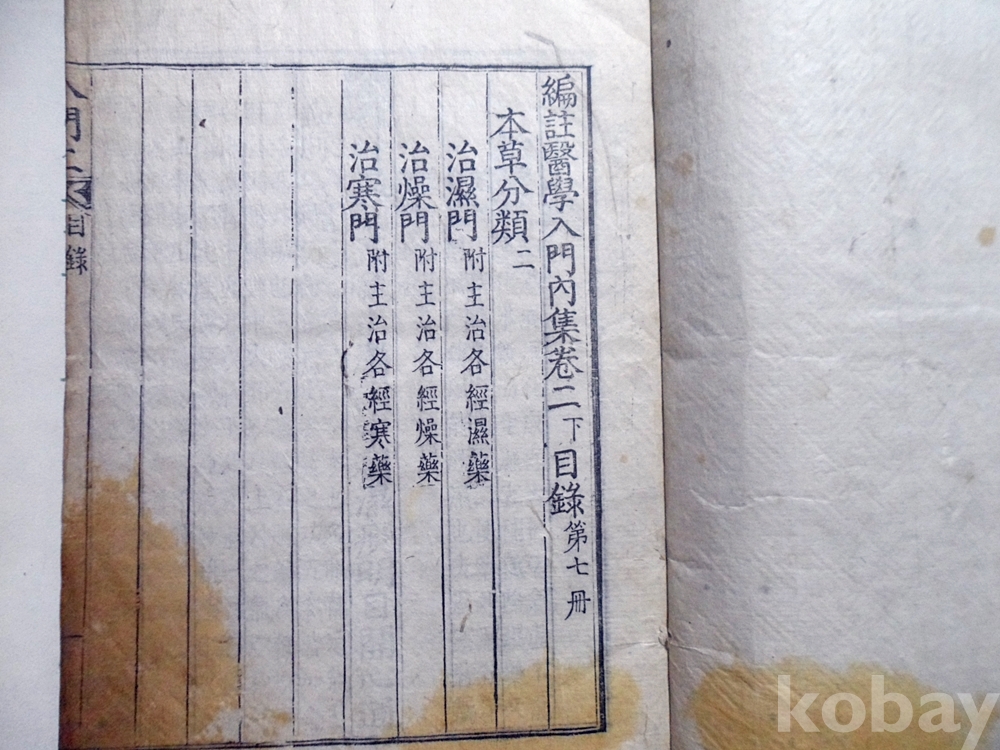 編註醫學入門內集卷二下目錄第七冊
本草分類二
治濕門附主治各經濕藥
治燥門附主治各經燥藥
治寒門附主治各經寒藥
入門二 目錄
kobay